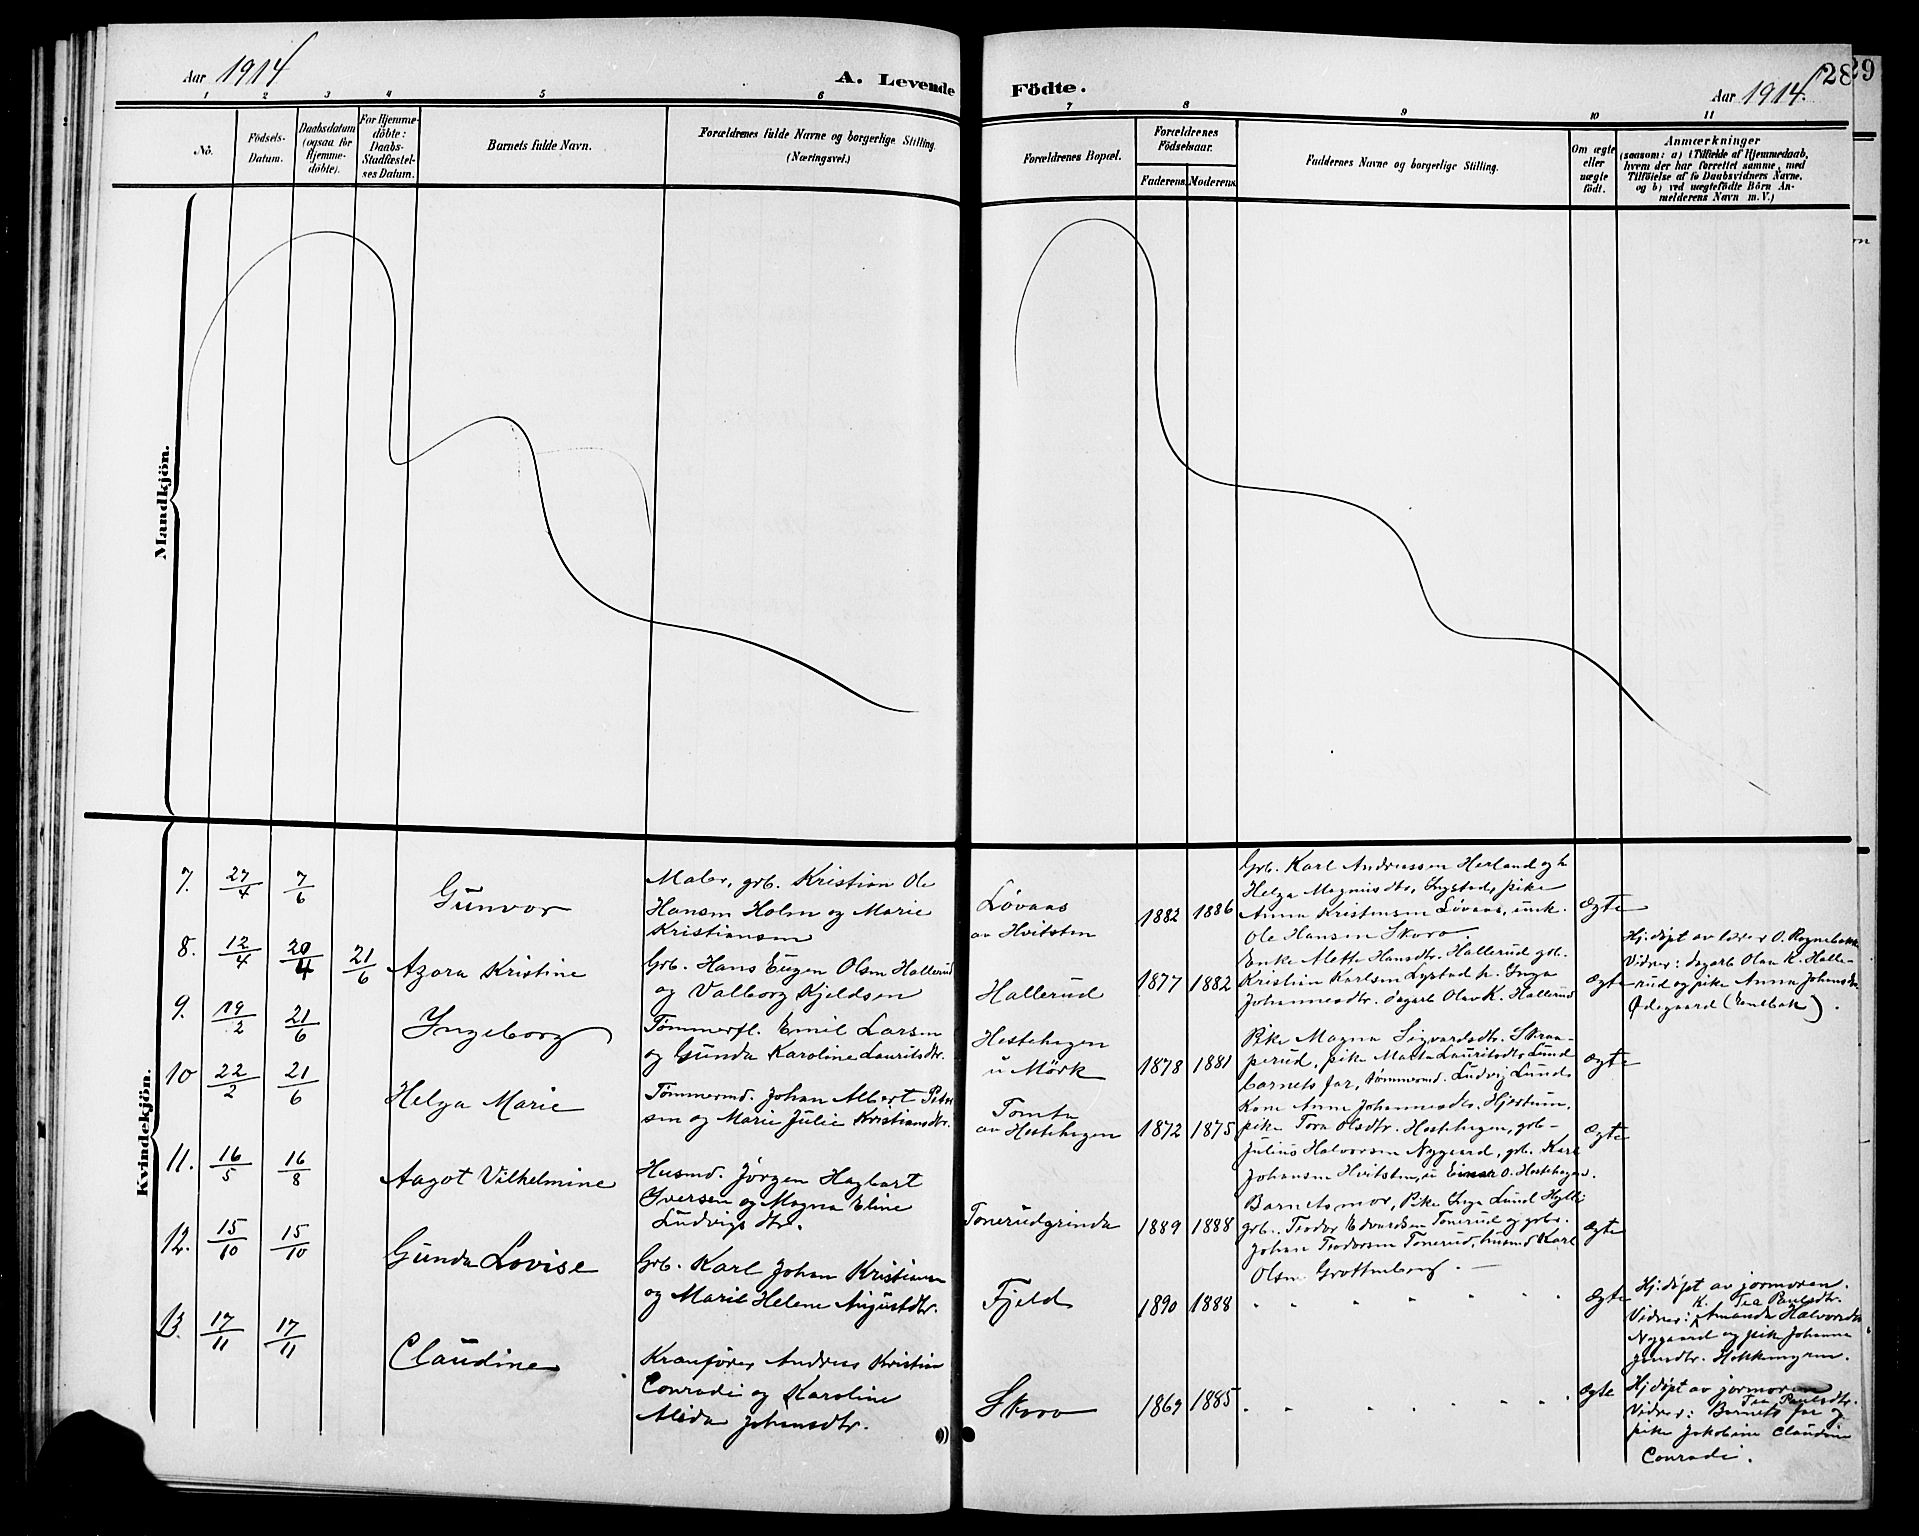 Aar 1914
A. Levende
Födte.
Aar 1914.
28
29
1 2 3 4 5 6 7 8 9 10 11
No.
Födsels-
Datum.
Daabsdatum
(ogsaa for
Hjemme-
döbte).
For Hjemme-
döbte:
Daabs-
Stadfæstel-
ses Datum.
Barnets fulde Navn.
Forældrenes fulde Navne og borgerlige Stilling.
(Næringsvei.)
Forældrenes Bopæl.
Forældrenes
Födselsaar.
Faderens.
Moderens.
Faddernes Navne og borgerlige Stilling.
Om ægte
eller
uægte
födt.
Anmærkninger
(saasom: a) i Tilfælde af Hjemmedaab,
hvem der har forrettet samme, med
Tilföielse af to Daabsvidners Navne,
og b) ved uægtefödte Börn An-
melderens Navn m. V.)
Mandkjön.
Kvindekjön.
7. 27/4 7/6
Gunvor
Maler, grb. Kristian Ole
Hansen Holm og Marie
Kristiansen
Løvaas
av Hvitsten
1882 1886
Grb. Karl Andreassen Herland og h
Helga Magnusdtr. Lystad, pike
Anna Kristensen Løvaas, unk.
Ole Hansen Skoro
Ægte
8. 12/4 20/4 21/6
Azora Kristine
Grb. Hans Eugen Olsen Hallerud
og Valborg Kjeldsen
Hallerud
1877 1882
Enke Alette Hansdtr. Hallerud grb.
Kristian Karlsen Lystad h. Inga
Johannesdtr. dagarb Olav K. Hallerud
Ægte
Hj.døpt av lærer O. Rognebakke
Vidner: dagarb Olav K. Halle-
rud og pike Anna Johansdtr
Ødegaard (Enebak).
9. 19/2 21/6
Ingeborg
Tømmerfl. Emil Larsen
og Gunda Karoline Lauritsdtr.
Hestehagen
u Mörk
1878 1881
Pike Magna Sigvardsdtr. Skraa-
perud, pike Marta Lauritsdtr Lund
barnets far, tømmermd. Ludvig Lund
Ægte
10 22/2 21/6
Helga Marie
Tømmermd. Johan Albert Peter
sen og Marie Julie Kristiansdtr.
Tomta
av Hestehagen
1872 1875
Kone Anne Johannesdtr. Hjertum,
pike Tora Olsdtr. Hestehagen, grb-
Julius Halvorsen Nygaard, grb. Karl
Johansen Hvitsten, u Einar O. Hestehagen.
Ægte
11. 16/5 16/8
Aagot Vilhelmine
Husmd. Jörgen Hagbart
Iversen og Magna Eline
Ludvigsdtr.
Tonerudgrinda
1889 1888
Barnets mor, Pike Inga Lund Hylli
grb. Teodor Edvardsen Tonerud og grbs.
Johan Teodorsen Tonerud, husmd Karl
Olsen Grottenberg.
Ægte
12. 15/10 15/10
Gunda Lovise
Grb. Karl Johan Kristiansen
og Marie Helene Augustdtr.
Fjeld
1890 1888
" " " " " "
Ægte
Hj.døpt av jormoren.
K. Tea Paulsdtr.
Vidner: Amanda Halvorsdtr
Nygaard og pik Johanne
Jensdtr. Hokkingren.
13. 17/11 17/11
Claudine
Kranfører Andreas Kristian
Conradi og Karoline
Alida Johansdtr.
Skoro
1869 1885
" " " " " "
Ægte
Hj.døpt av jormoren
Tea Paulsdtr.
Vidner: Barnets far og
pike Jakobine Claudine
Conradi.